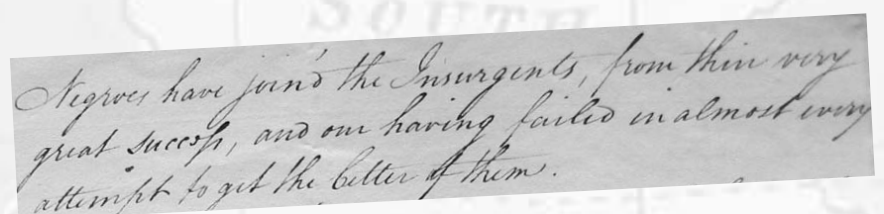 SOUTH
Negroes have join'd the Insurgents, from their very
great success, and our having failed in almost every
attempt to get the better of them.